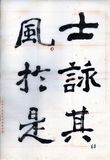 士詠其
風於是